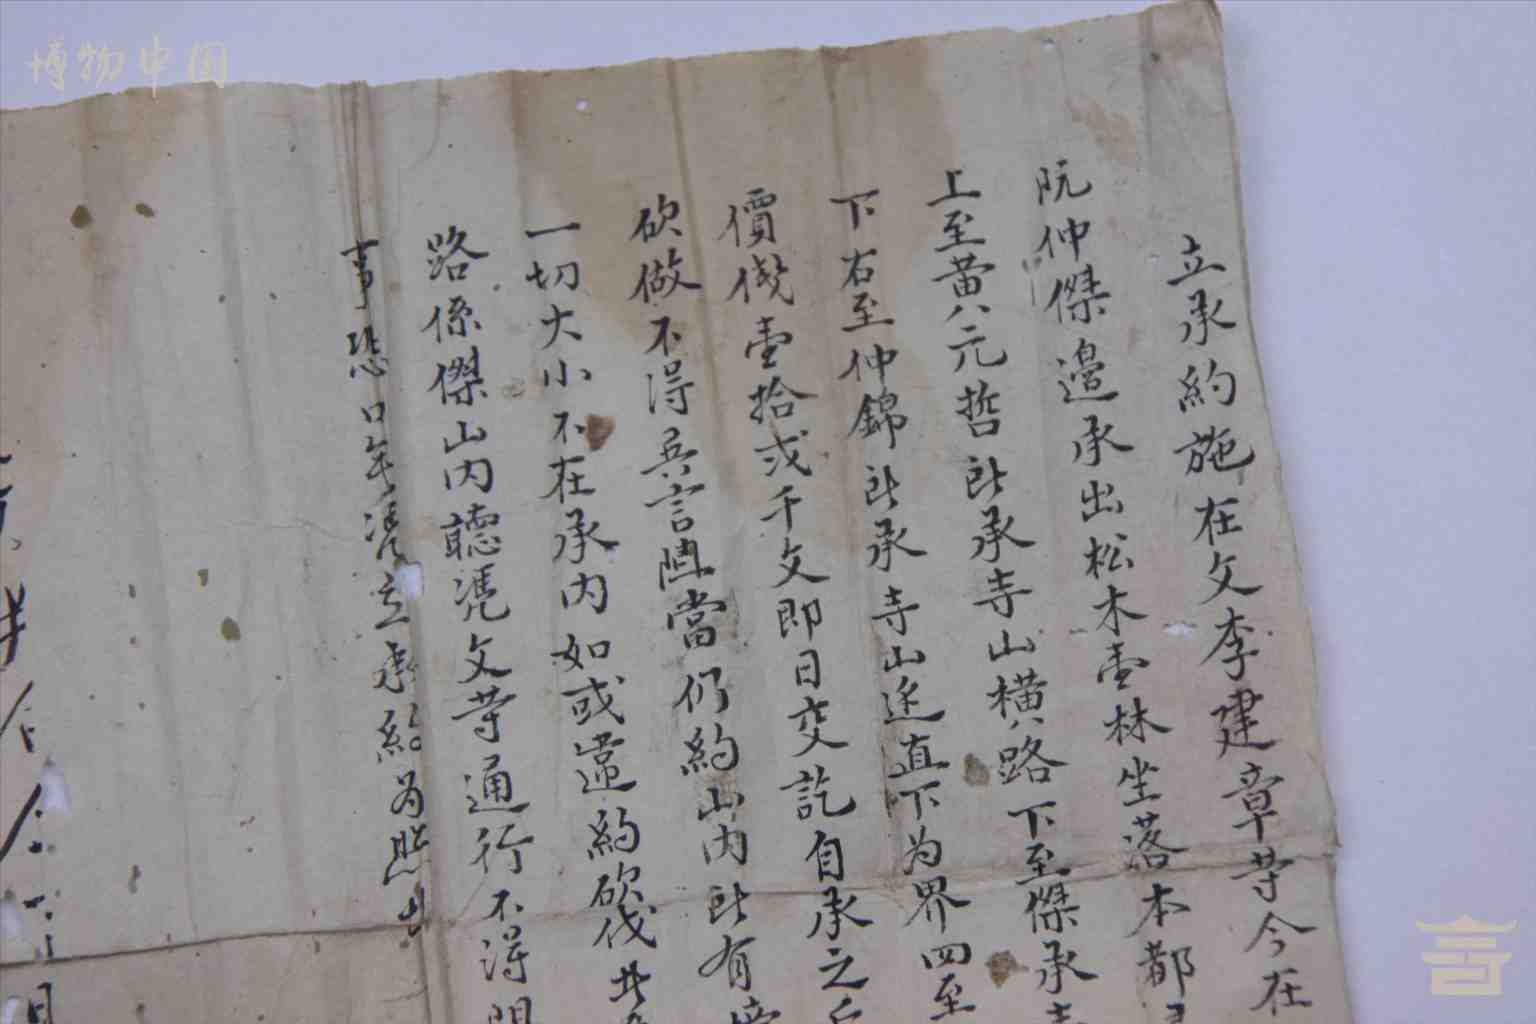 博物中国
立承約施在文李建章等今在
阮仲傑邊承出松木壹林坐落本都
上至黄八元哲㽵承寺山橫路下至傑承
下右至仲錦㽵承寺山透直下为界四至
價錢壹拾弍千文即日交訖自承之
砍做不得異言阻當仍約山内㽵有
一切大小不在承内如或違約砍伐
路係傑山内聽憑文等通行不得
事恐口無憑立承約为照